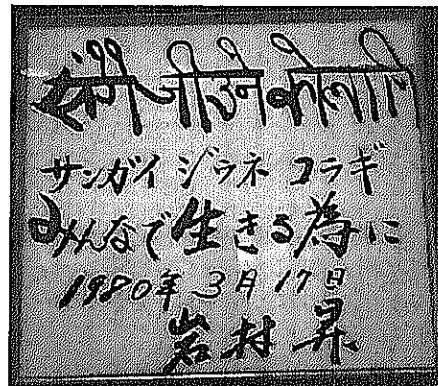 सँगै जीउने कोलागि
サンガイ ジウネ コラギ
みんなで生きる為に
1980年3月17日
岩村昇